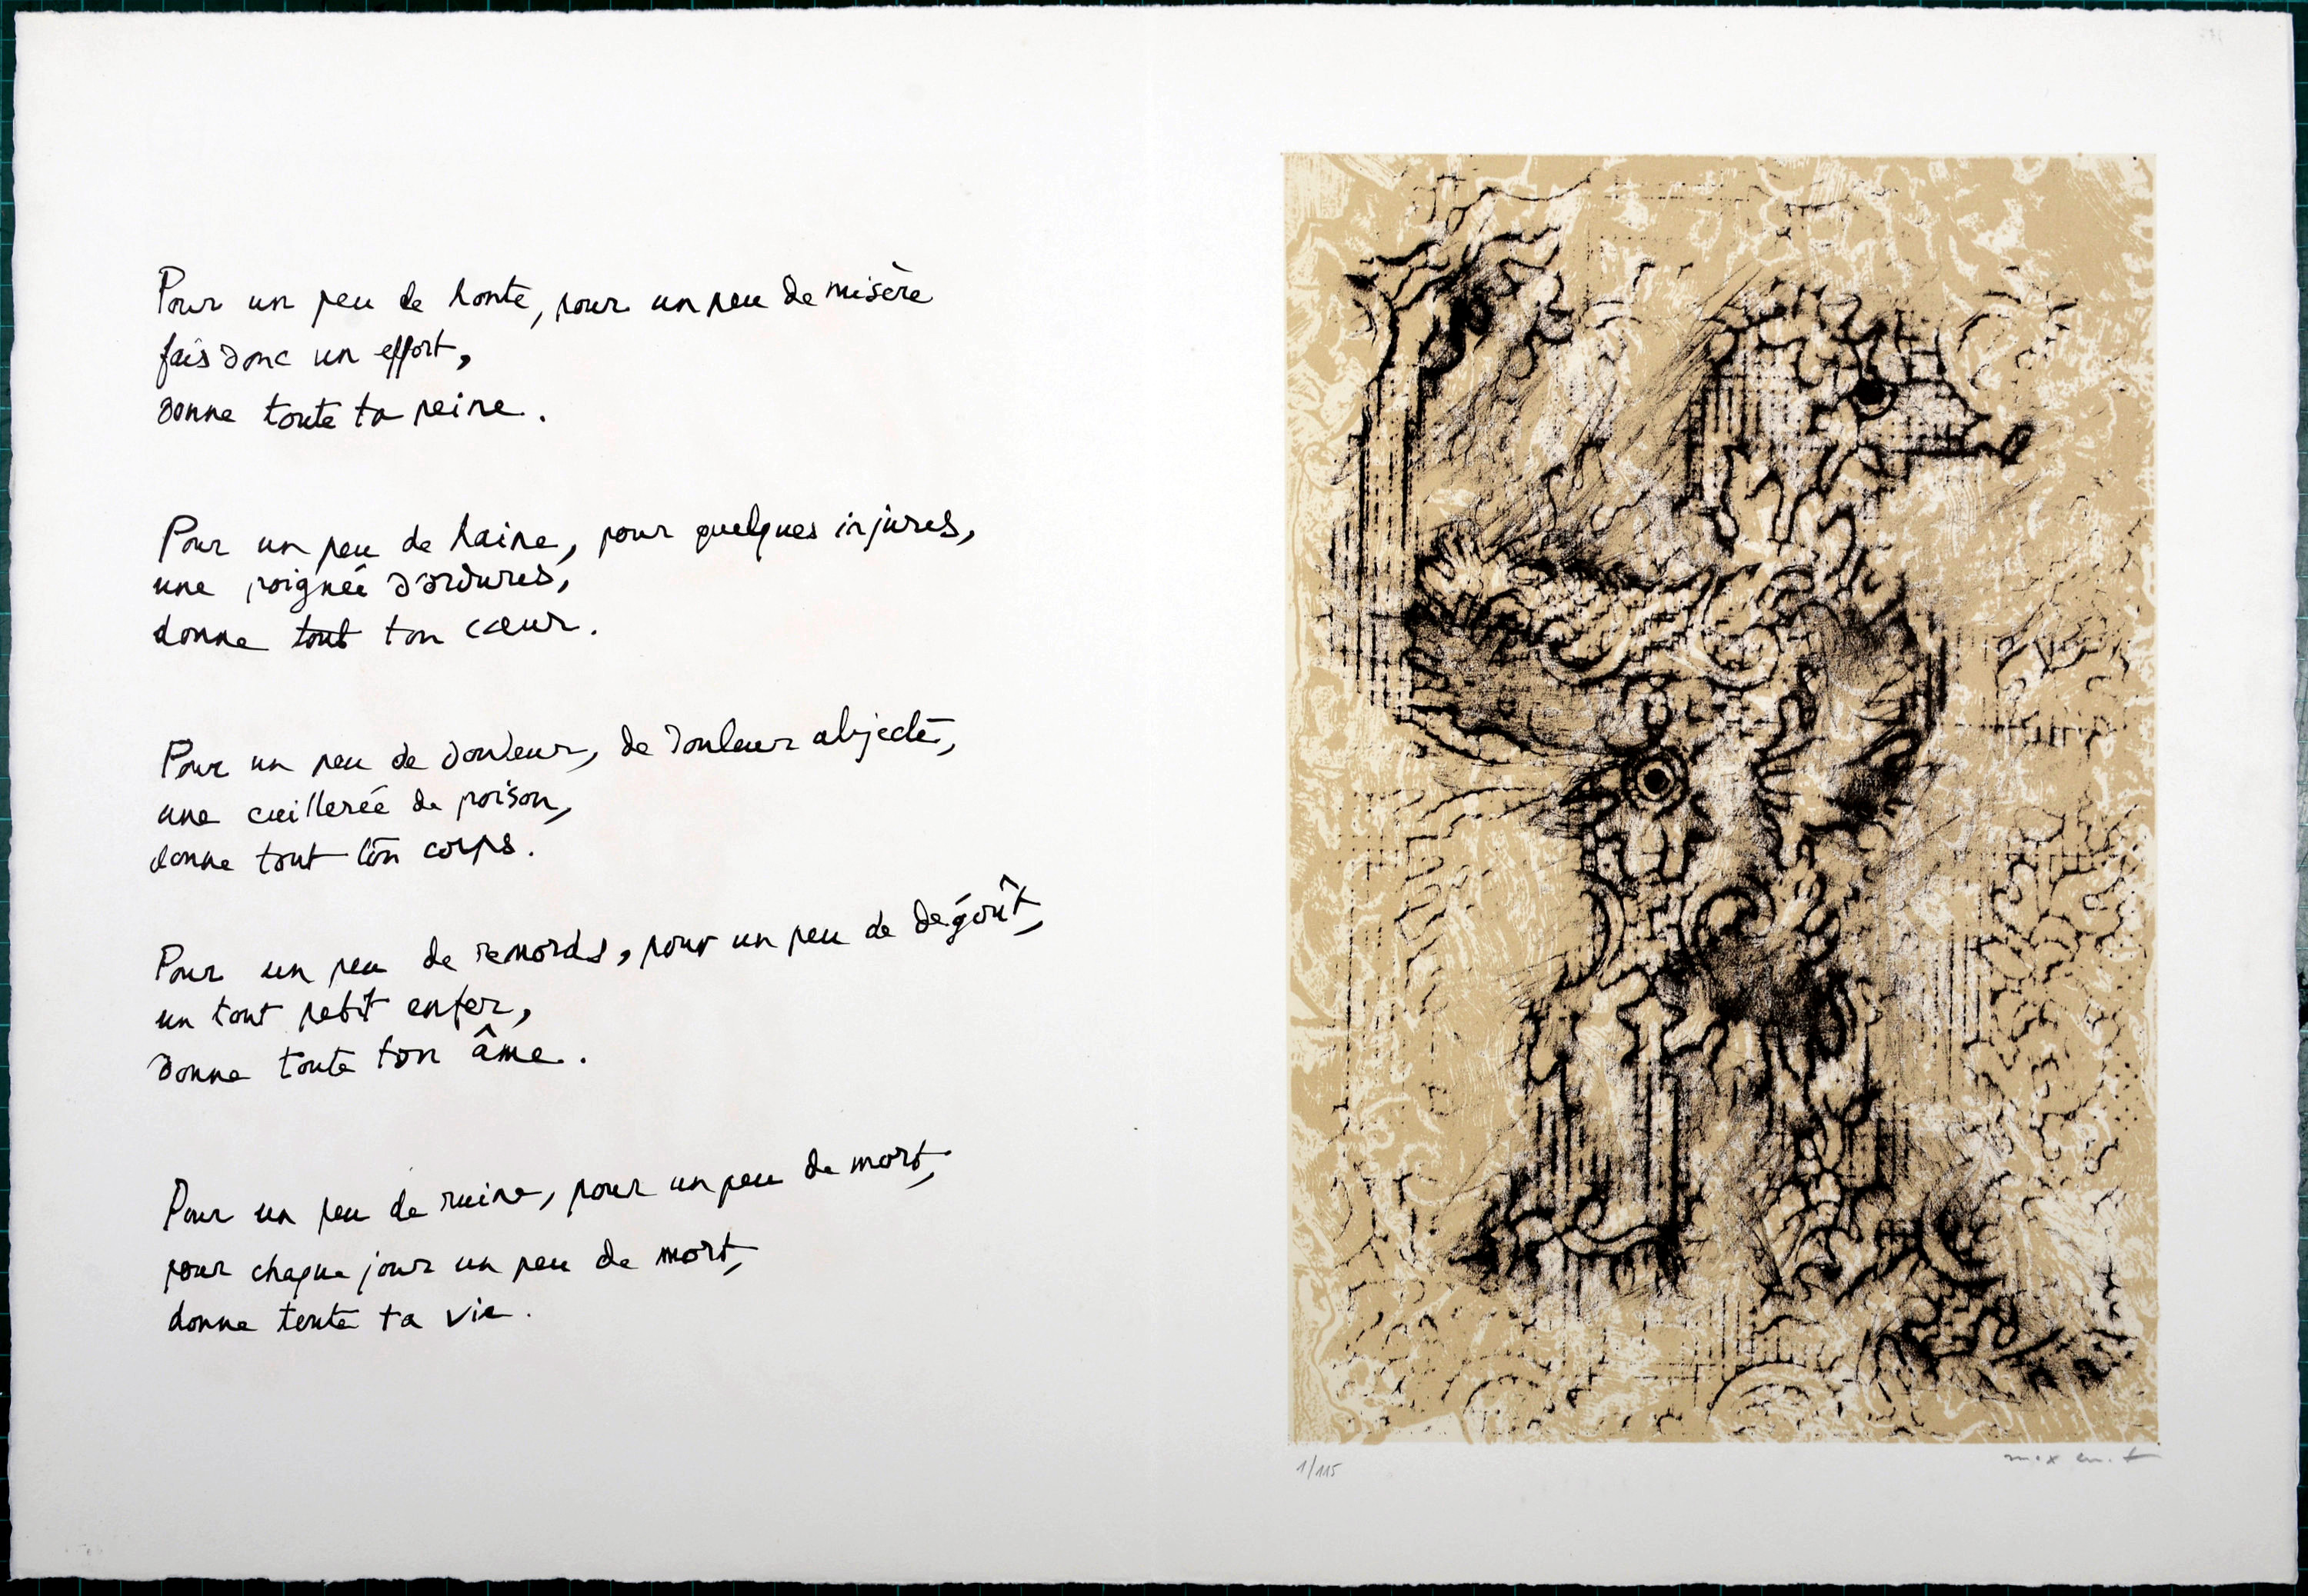 Pour un peu de honte, pour un peu de misère
fais donc un effort,
donne toute ta peine.
Pour un peu de haine, pour quelques injures,
une poignée d'ordures,
donne tout ton cœur.
Pour un peu de douleur, de douleur abjecte,
une cuillerée de poison,
donne tout ton corps.
Pour un peu de remords, pour un peu de dégoût,
un tout petit enfer,
donne toute ton âme.
Pour un peu de ruine, pour un peu de mort,
pour chaque jour un peu de mort,
donne toute ta vie.
1/115
max ernst